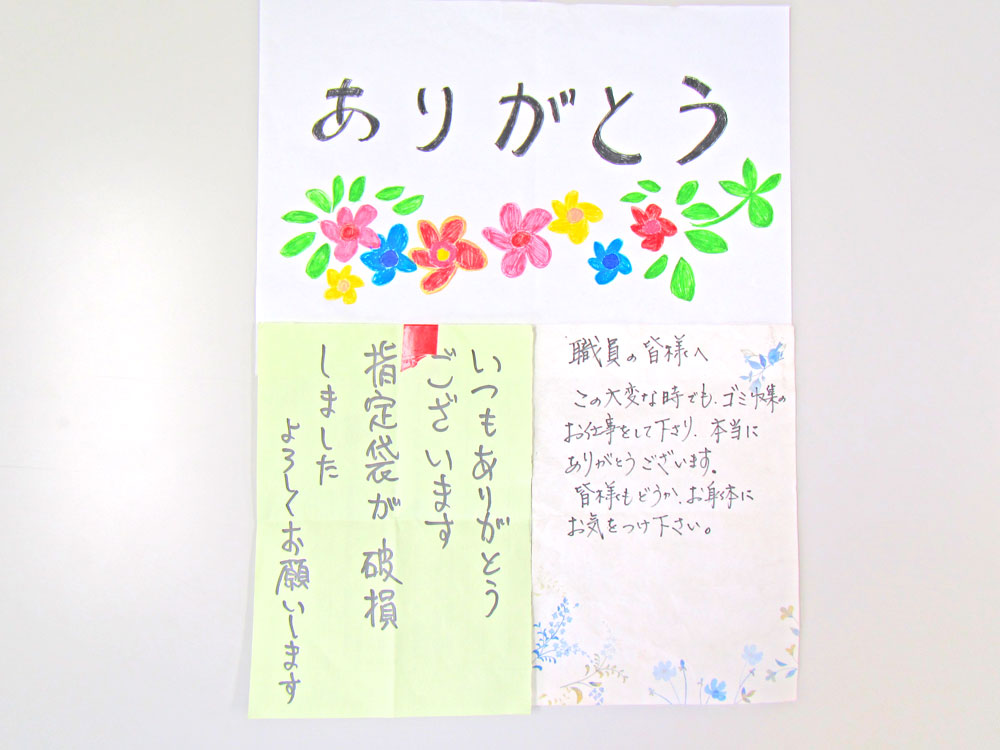 ありがとう
いつもありがとう
ございます
指定袋が破損
しました
よろしくお願いします
職員の皆様へ
この大変な時でも、ゴミ収集の
お仕事をして下さり、本当に
ありがとうございます。
皆様もどうか、お身体に
お気をつけ下さい。